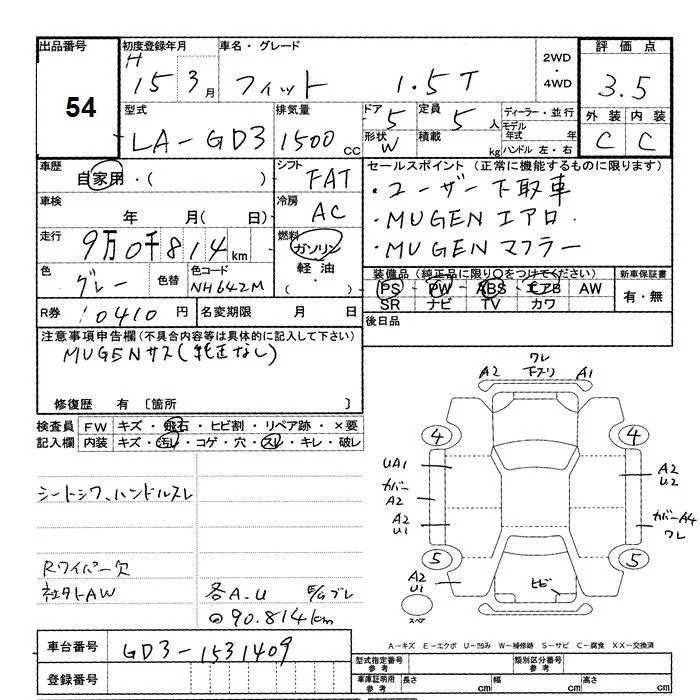 出品番号
54
初度登録年月
H 15 3月
車名・グレード
フィット 1.5T
2WD
・
4WD
評価点
3.5
外装 内装
C C
型式
LA-GD3
排気量
1500cc
ドア
5
定員
5人
形状
W
積載
kg
ディーラー・並行
モデル年式 年
ハンドル 左・右
車歴
自家用・( )
シフト
FAT
セールスポイント(正常に機能するものに限ります)
・ユーザー下取車
・MUGENエアロ.
・MUGENマフラー
車検
年 月( 日)
冷房
AC
走行
9万0千814km
燃料
ガソリン
軽油
・( )
色
グレー
色替
色コード
NH642M
装備品(純正品に限り○をつけてください)
PS PW ABS エアB AW
SR ナビ TV カワ
新車保証書
有・無
R券
10410円
名変期限 月 日
後日品
注意事項申告欄(不具合内容等は具体的に記入して下さい)
MUGENサス(純正なし)
修復歴 有〔箇所 〕
検査員記入欄
FW キズ・飛石・ヒビ割・リペア跡・×要
内装 キズ・汚れ・コゲ・穴・スレ・キレ・破レ
シートシワ、ハンドルスレ
Rワイパー欠
社外AW
各A.U
E/Gブレ
◎90.814km
ワレ
下スリ
A2
A1
4
4
UA1
カバー
A2
A2
U1
A2
U2
カバーA4
ワレ
5
5
A2
U1
ヒビ
スペア
車台番号
GD3-1531409
登録番号
A-キズ E-エクボ U-凹み W-補修跡 S-サビ C-腐食 XX-交換済
型式指定番号
参考
類別区分番号
参考
車庫証明用
参考
長さ cm
幅 cm
高さ cm